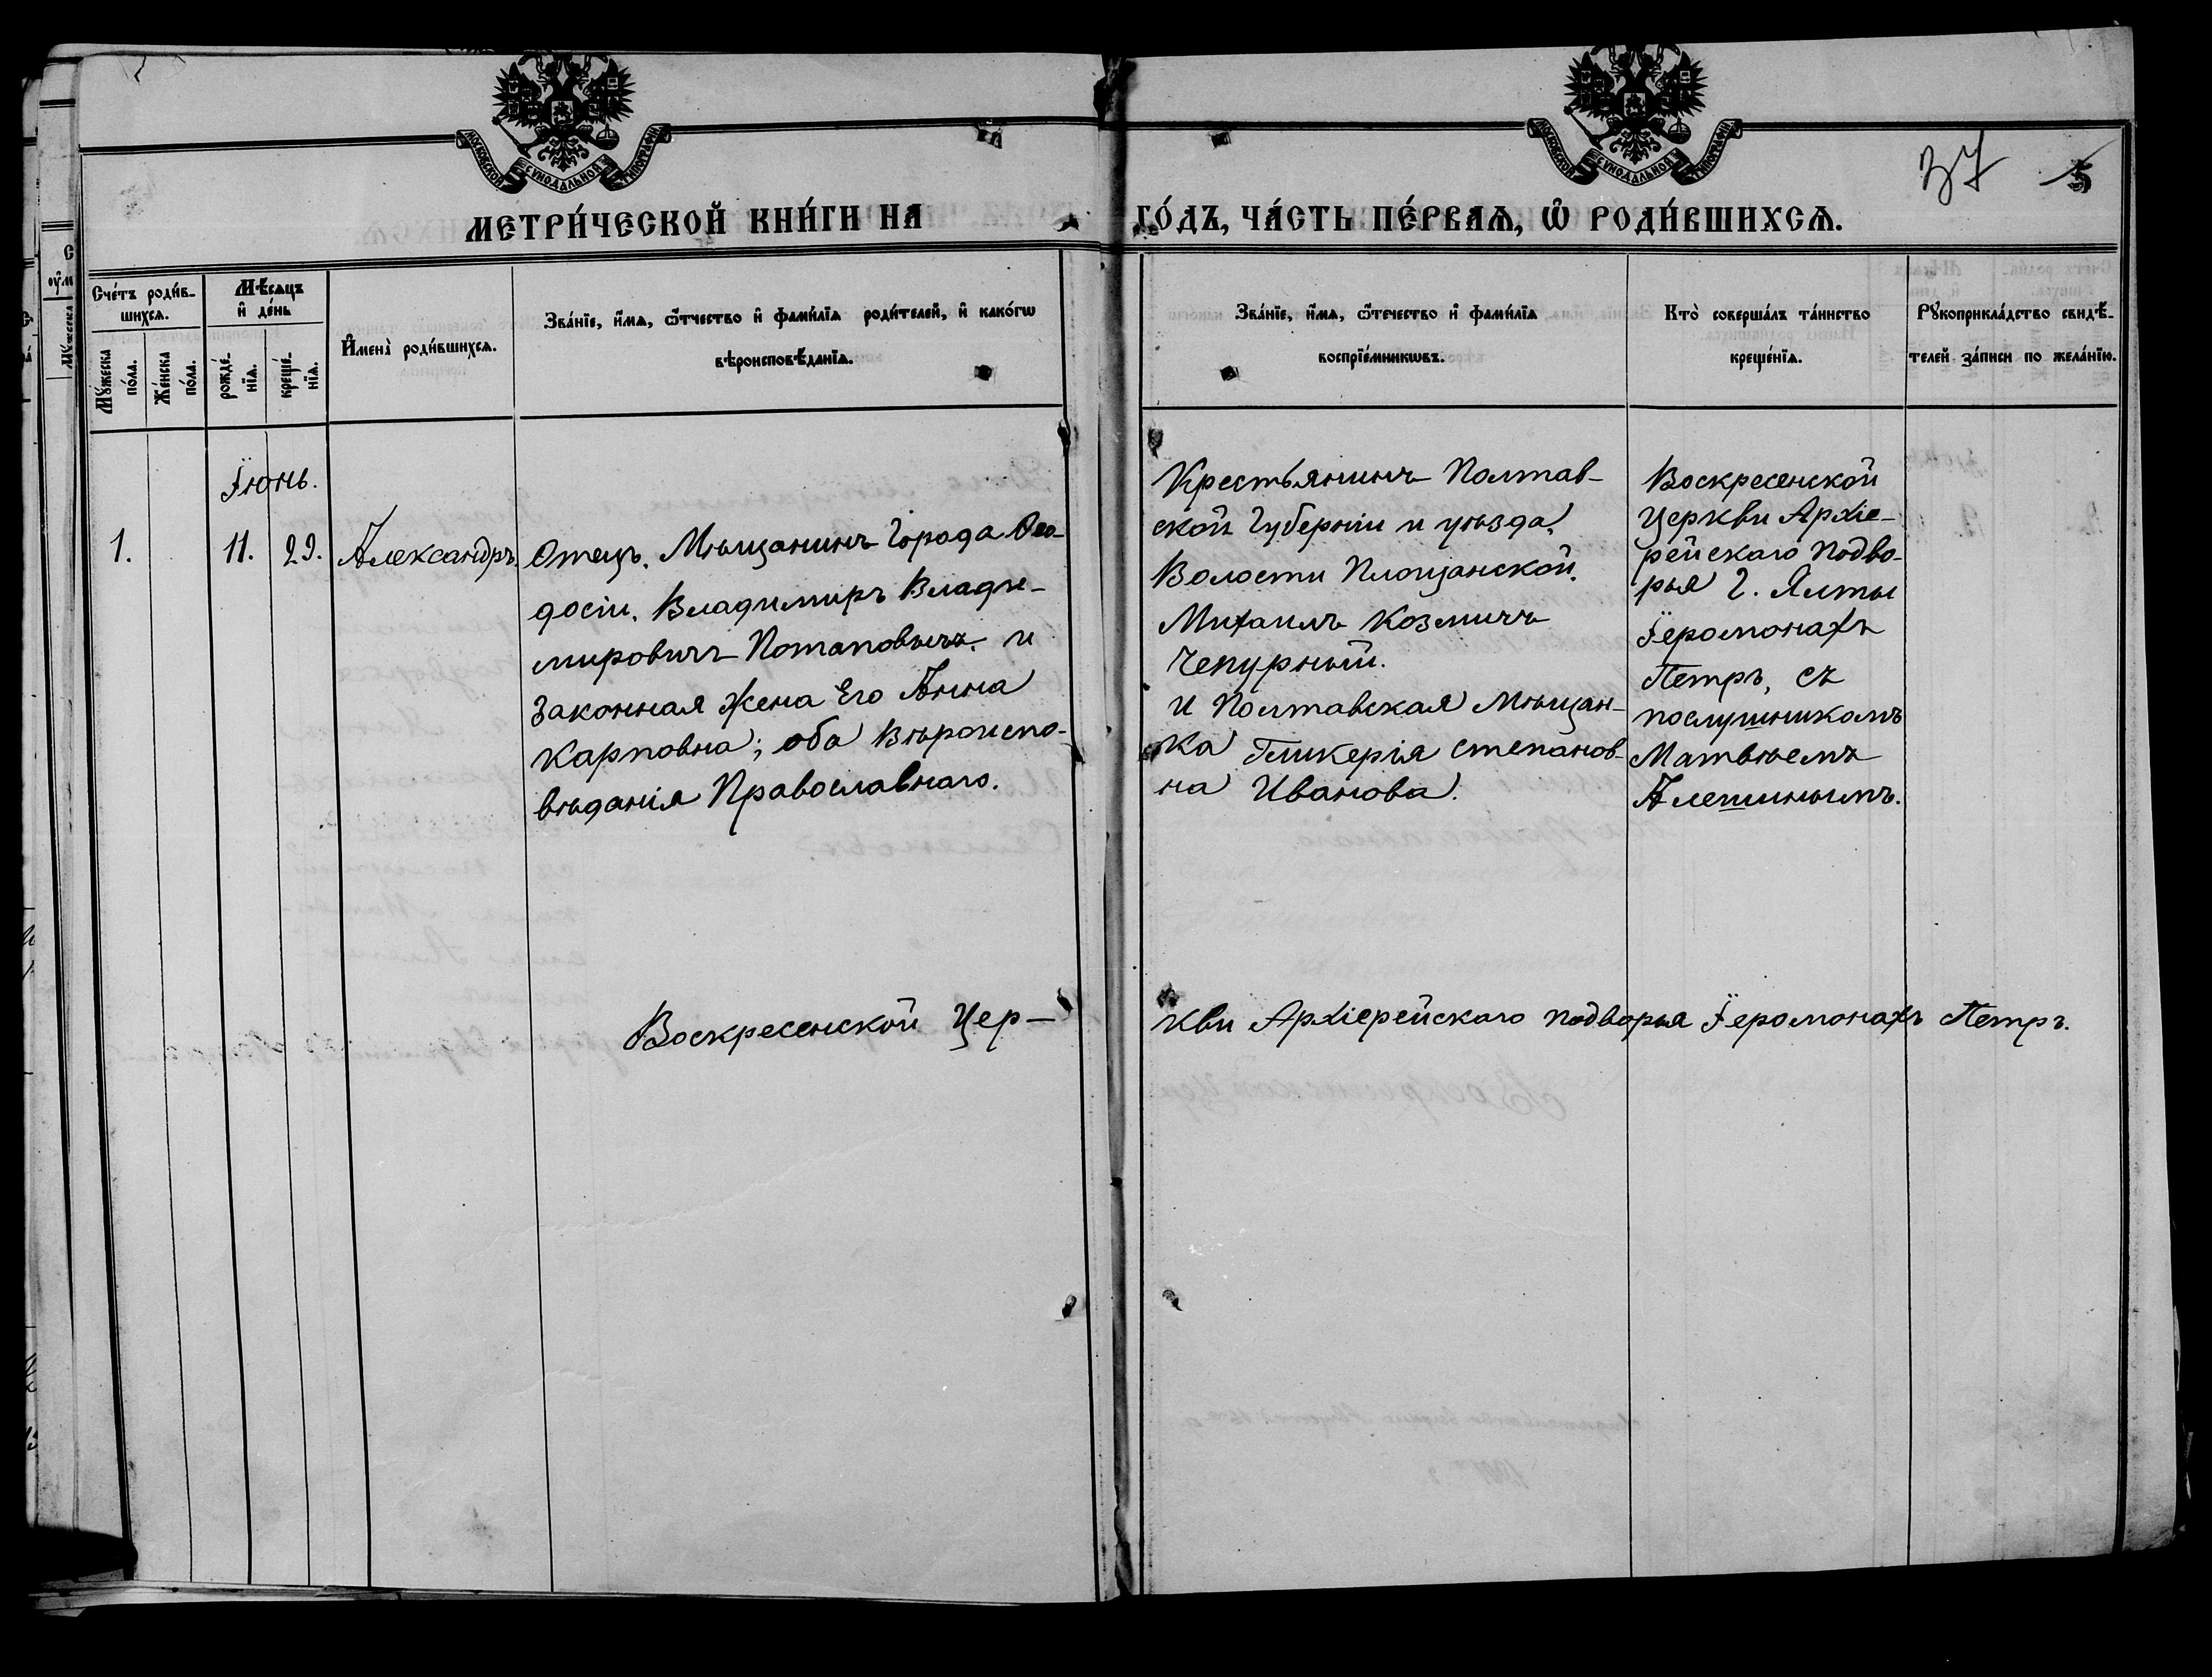 МОСКОВСКОЙ СѴНОДАЛЬНОЙ ТИПОГРАФІИ
МОСКОВСКОЙ СѴНОДАЛЬНОЙ ТИПОГРАФІИ
37 5
МЕТРИ́ЧЕСКОЙ КНИ́ГИ НА ГО́ДЪ, ЧА́СТЬ ПЕ́РВАѦ, Ѡ҆ РОДИ́ВШИХСѦ.
Сче́тъ роди́в-
шихсѧ.
Мꙋ́жеска
по́ла.
Же́нска
по́ла.
Мѣ́сѧцъ
и҆ де́нь
рожде́-
нїѧ.
креще́-
нїѧ.
И҆мена̀ роди́вшихсѧ.
Зва́нїе, и҆́мѧ, ѻ҆́тчество и҆ фами́лїѧ роди́телей, и҆ како́гѡ
вѣроисповѣ́данїѧ.
Зва́нїе, и҆́мѧ, ѻ҆́течество и҆ фами́лїѧ
воспрїе́мникѡвъ.
Кто̀ соверша́лъ та́инство
креще́нїѧ.
Рꙋкоприкла́дство свидѣ́-
телей за́писи по жела́нїю.
Їюнь.
1. 11. 29. Александръ.
Отецъ. Мѣщанинъ Города Ѳео-
досіи. Владимиръ Влади-
мировичъ Потаповичъ. и
Законная Жена Его Анна
Карповна; оба Вѣроиспо-
вѣданія Православнаго.
Крестьянинъ Полтав-
ской Губерніи и уѣзда,
Волости Площанской.
Михаилъ Козмичъ
Чепурный.
И Полтавская Мѣщан-
ка Гликерія Степанов-
на Иванова.
Воскресенской
Церкви Архіе-
рейскаго Подво-
рья Г. Ялты
Їеромонахъ
Петръ, съ
послушникомъ
Матвѣемъ
Алешинымъ.
Воскресенской Цер-
кви Архіерейскаго подворья Їеромонахъ Петръ.